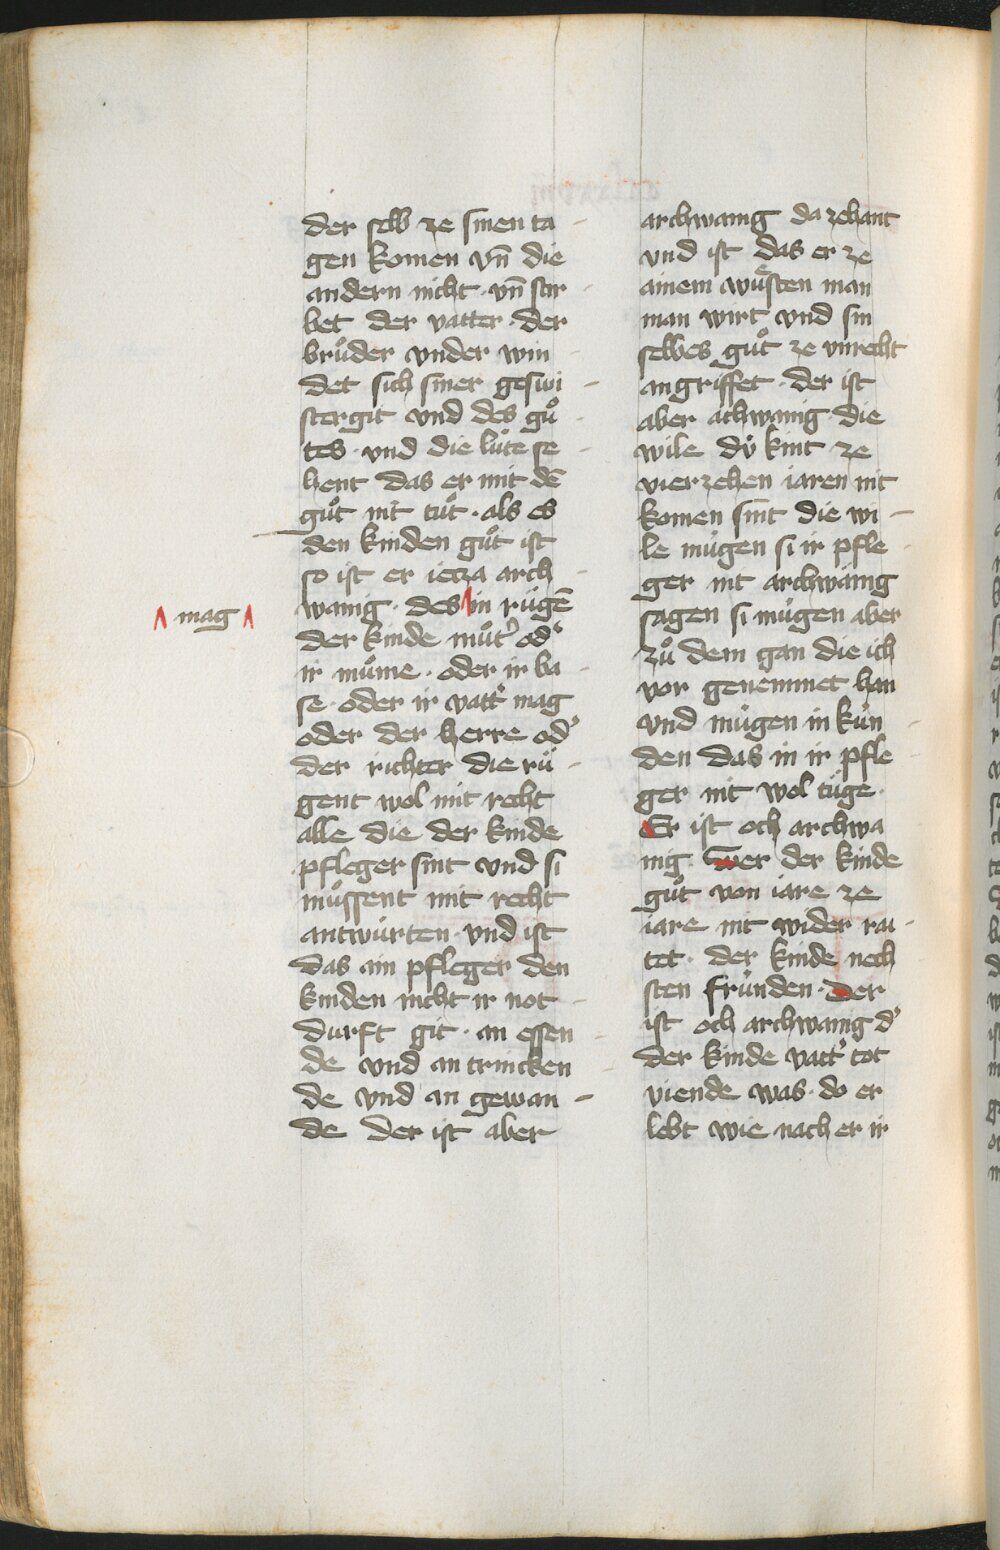 der selb ze sinen ta
gen komen vn̄ die
andern nicht · vn̄ stir
bet der vatter · der
brůder vnder win
det sich siner geswi
stergit vnd des gů
tes · vnd die lu̍te se
hent das er mit dē
gůt nit tůt · als es
den kinden gůt ist
so ist er ietza arch
wanig · des in rügē
mag
der kinde můt' od'
ir můme · oder ir ba
se · oder ir vatt' mag
oder der herre od'
der richter die rü
gent wol mit recht
alle die der kinde
pfleger sint vnd si
mu̍ssent mit recht
antwu̍rten · vnd ist
das ain pfleger den
kinden nicht ir not
durft git · an essen
de vnd an trincken
de vnd an gewan
de der ist aber
archwanig da zehant
vnd ist das er ze
ainem wůsten man
man wirt vnd sin
selbes gůt ze vnrecht
angriffet · der ist
aber achwanig · die
wile dü kint ze
vierzehen iaren nit
komen sint die wi
le mu̍gen si ir pfle
ger nit archwanig
sagen si mu̍gen aber
zů dem gan die ich
vor genemmet han
vnd mu̍gen in ku̍n
den das in ir pfle
ger nit wol tüge ·
Er ist och archwa
nig wer der kinde
gůt von iare ze
iare nit wider rai
tet · der kinde nech
sten fru̍nden · Der
ist och archwanig d'
der kinde vatt' tot
viende was · do er
lebt wie nach er ir